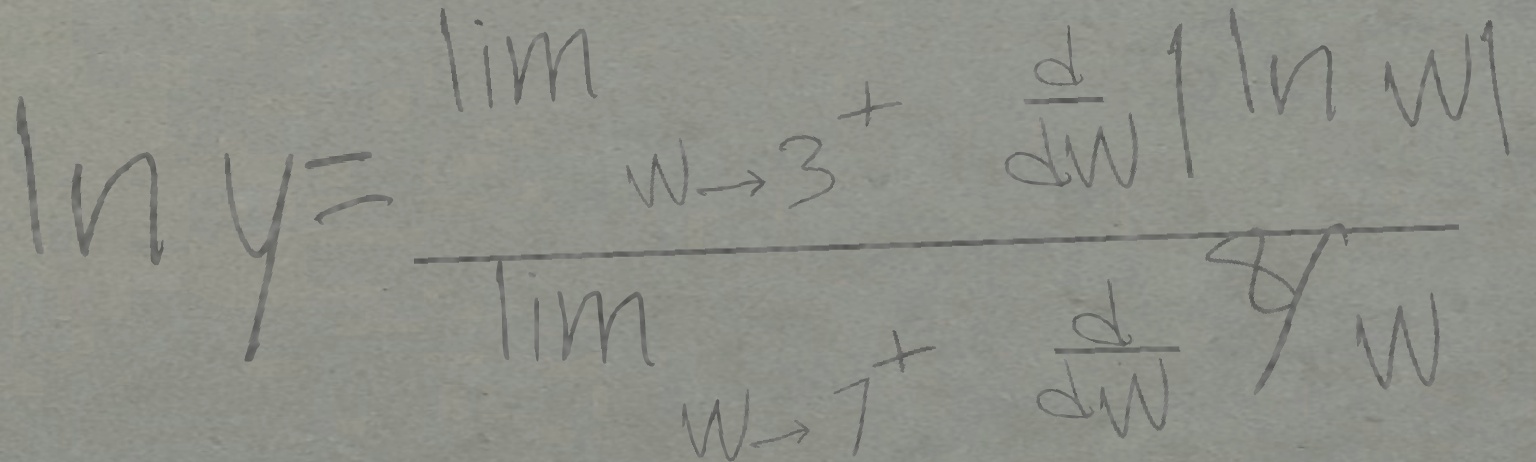 ln y = \frac{\lim_{w \to 3^+} \frac{d}{dw} |ln w|}{\lim_{w \to 7^+} \frac{d}{dw} 8/w}